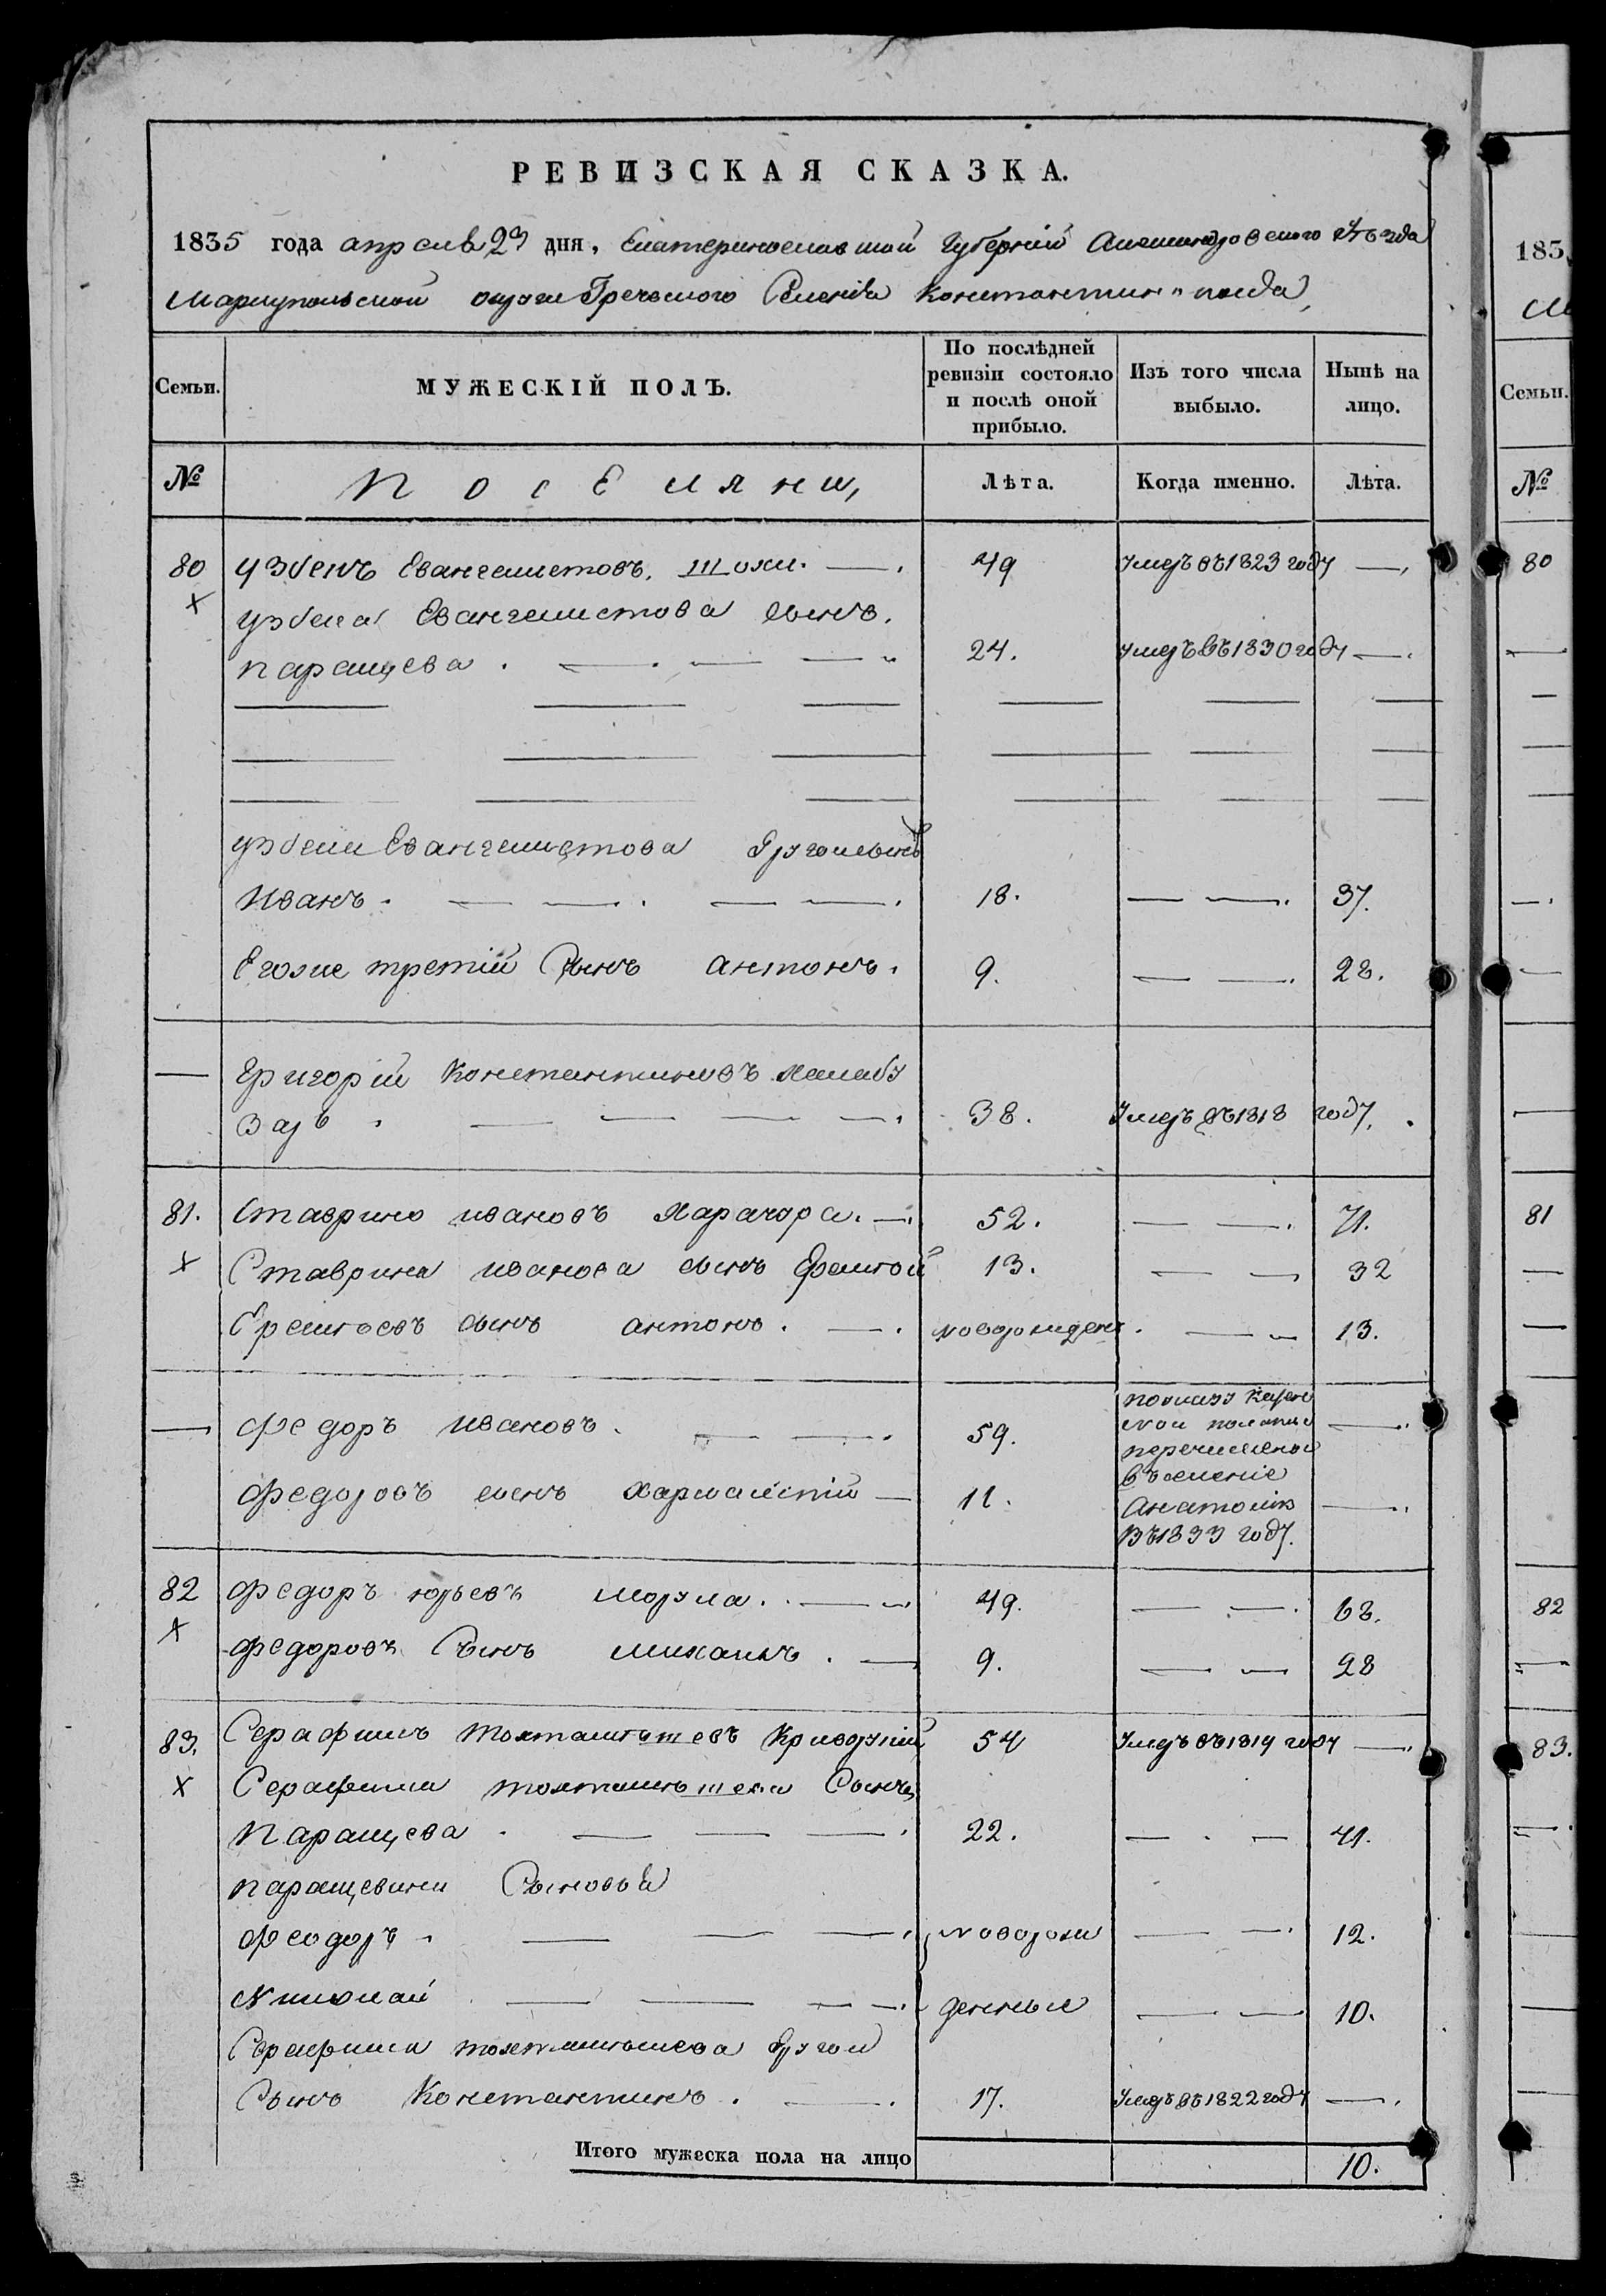 РЕВИЗСКАЯ СКАЗКА.
1835 года апреля 23 дня, Екатеринославской Губернии Александровского уезда
Мариупольской округи Греческого Селения Константинополя,
183
Семьи.
МУЖЕСКІЙ ПОЛЪ.
По послѣдней ревизіи состояло и послѣ оной прибыло.
Изъ того числа выбыло.
Нынѣ на лицо.
Семьи.
№
Поселяни,
Лѣта.
Когда именно.
Лѣта.
№
80 Узбекъ Евангелистовъ, 49 умеръ въ 1823 году — 80
узбека Евангелистова сынъ.
паращева. 24. умеръ въ 1830 году —
узбека Евангелистова другой сынъ
Иванъ. 18. — 37.
Его же третій Сынъ антонъ. 9. — 28.
— Григорій Константиновъ халабу
заръ. 38. Умеръ въ 1818 году.
81. Ставрино ивановъ Харачора. 52. — 71. 81
х Ставрина иванова сынъ Фемлой 13. — 32
сынъ антонъ. новорожден. — 13.
— Федоръ Ивановъ. 59. —
по указу казен
ной палаты
перечислены
въ селеніе
Анатолія
въ 1833 году.
Федоровъ сынъ Харлампій — 11. —
82 Федоръ юрьевъ 49. — 68. 82
х Федоровъ Сынъ михаилъ. 9. — 28
83. Серафимъ 54 Умеръ въ 1819 году — 83.
х Серафима Сынъ
Паращева 22. — 41.
паращевини Сыновья
Феодоръ новорож — 12.
Николай денные — 10.
Серафима другой
Сынъ Константинъ. 17. Умеръ въ 1822 году —.
Итого мужеска пола на лицо 10.